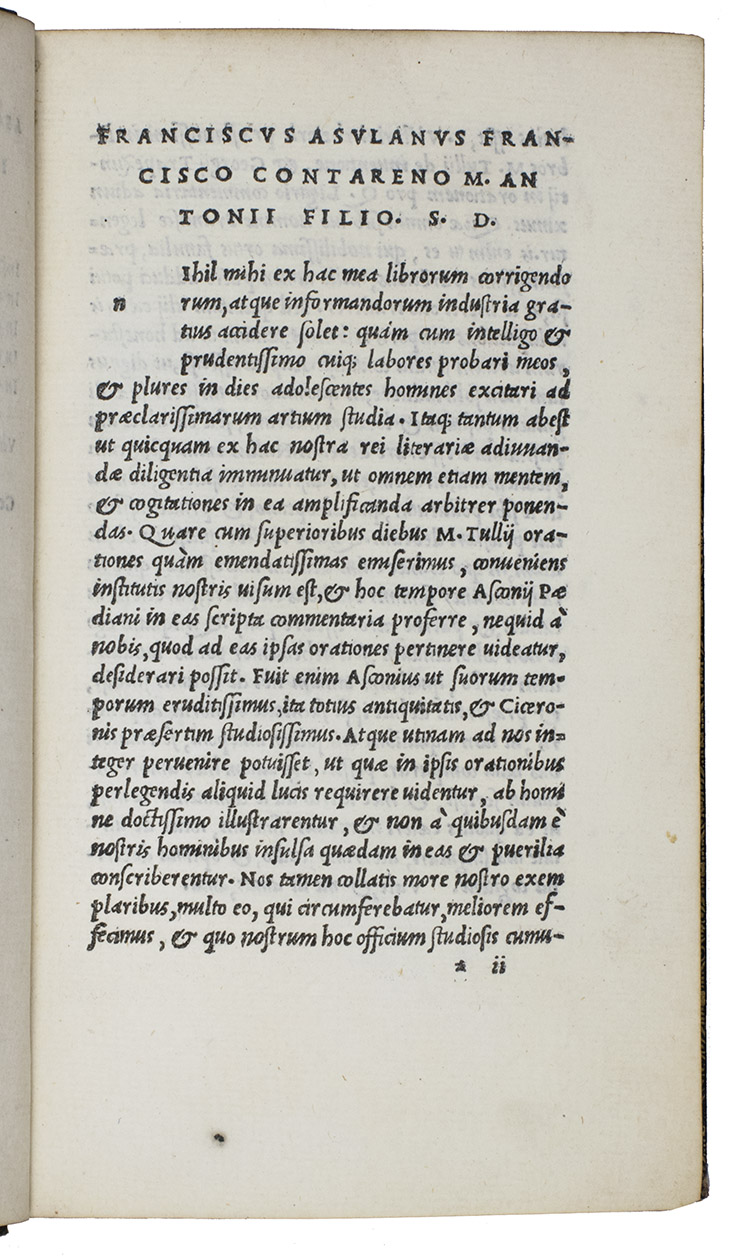 FRANCISCVS ASVLANVS FRAN-
CISCO CONTARENO M. AN
TONII FILIO. S. D.
Ihil mihi ex hac mea librorum corrigendo
n rum, atque informandorum industria gra-
tius accidere solet: quám cum intelligo &
prudentissimo cuiq; labores probari meos,
& plures in dies adolescentes homines excitari ad
præclarissimarum artium studia. Itaq; tantum abest
ut quicquam ex hac nostra rei literariæ adiuuan-
dæ diligentia imminuatur, ut omnem etiam mentem,
& cogitationes in ea amplificanda arbitrer ponen-
das. Quare cum superioribus diebus M. Tullij ora-
tiones quàm emendatissimas emiserimus, conueniens
institutis nostris uisum est, & hoc tempore Asconij Pæ
diani in eas scripta commentaria proferre, nequid à
nobis, quod ad eas ipsas orationes pertinere uideatur,
desiderari possit. Fuit enim Asconius ut suorum tem-
porum eruditissimus, ita totius antiquitatis, & Cicero-
nis præsertim studiosissimus. Atque utinam ad nos in-
teger peruenire potuisset, ut quæ in ipsis orationibus
perlegendis aliquid lucis requirere uidentur, ab homi
ne doctissimo illustrarentur, & non à quibusdam è
nostris hominibus insulsa quædam in eas & puerilia
conscriberentur. Nos tamen collatis more nostro exem
plaribus, multo eo, qui circumferebatur, meliorem ef-
fecimus, & quo nostrum hoc officium studiosis cumu-
a ii